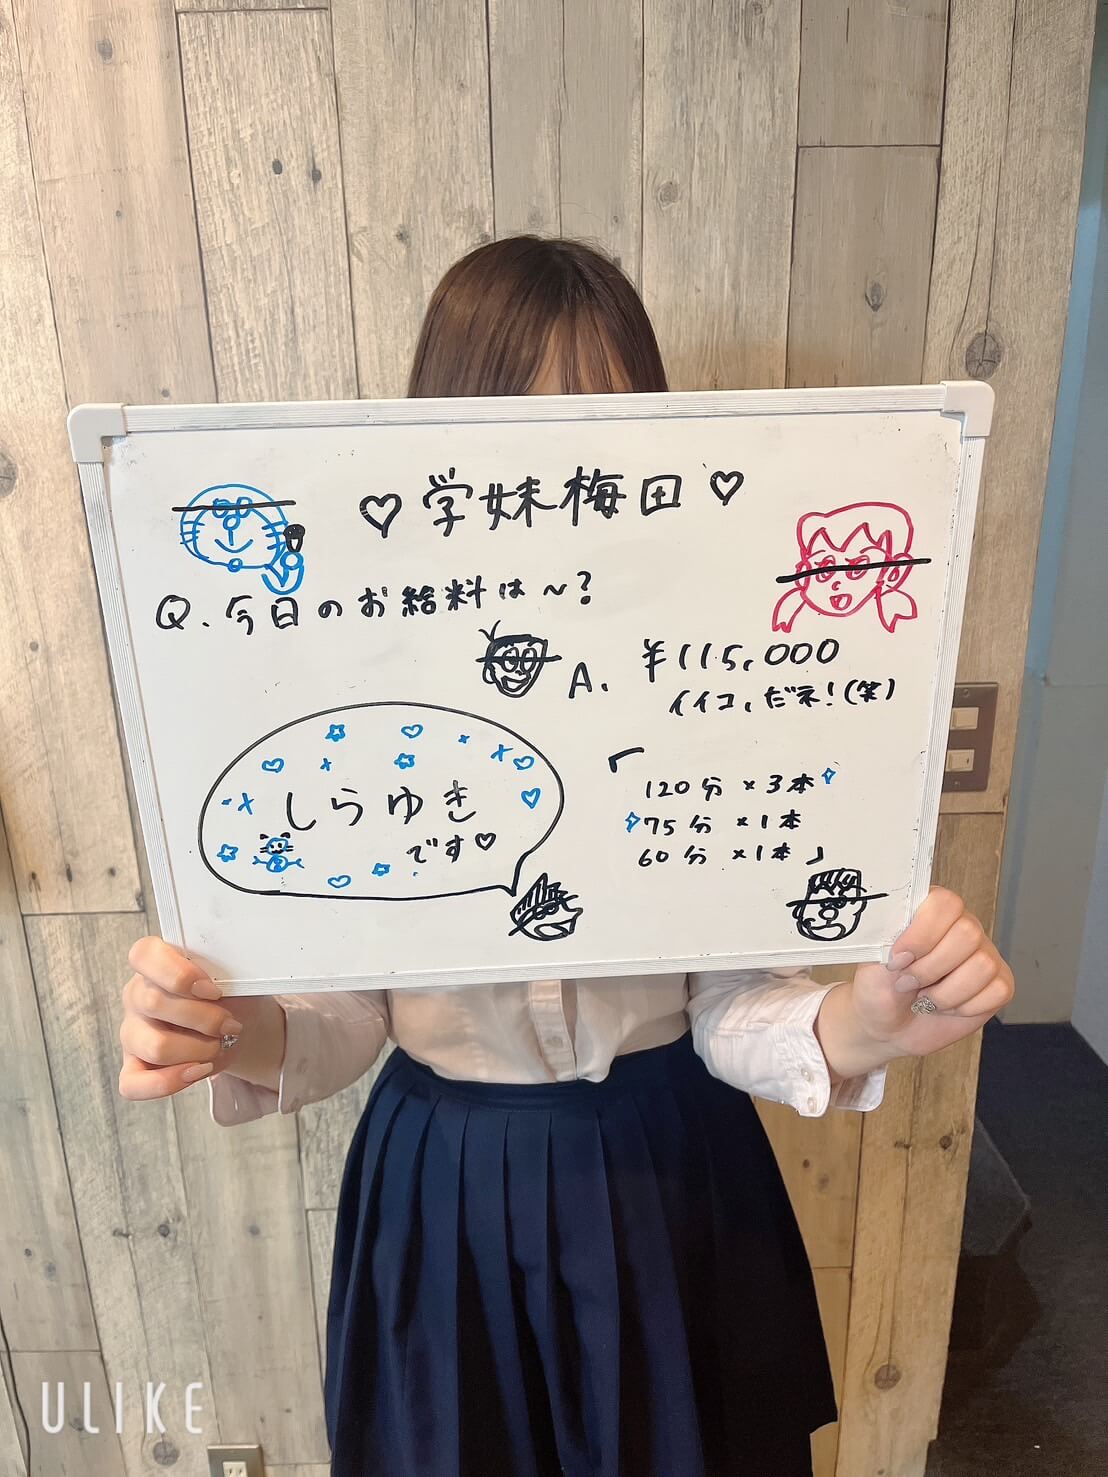 ♡学妹梅田♡
Q.今日のお給料は〜?
A. ¥115,000
イイコ,だネ!(笑)
しらゆき
です♡
「120分×3本
75分×1本
60分×1本」
ULIKE